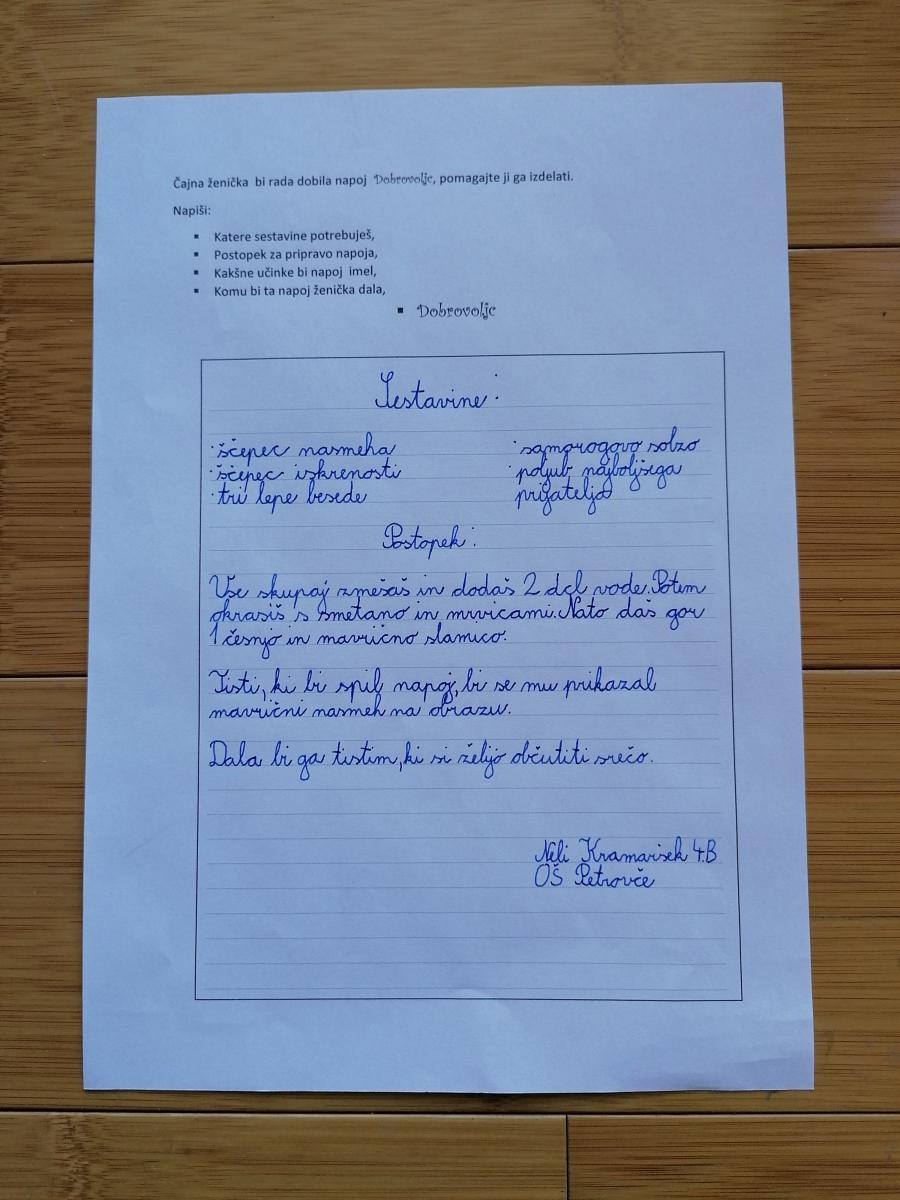 Čajna ženička bi rada dobila napoj Dobrovoljc, pomagajte ji ga izdelati.
Napiši:
▪ Katere sestavine potrebuješ,
▪ Postopek za pripravo napoja,
▪ Kakšne učinke bi napoj imel,
▪ Komu bi ta napoj ženička dala,
▪ Dobrovoljc
Sestavine:
·ščepec nasmeha
·ščepec iskrenosti
·tri lepe besede
·samorogovo solzo
·poljub najboljšega
prijatelja
Postopek:
Vse skupaj zmešaš in dodaš 2 dcl vode. Potem
okrasiš s smetano in mrvicami. Nato daš gor
1 češnjo in mavrično slamico.
Tisti, ki bi spil napoj, bi se mu prikazal
mavrični nasmeh na obrazu.
Dala bi ga tistim, ki si želijo občutiti srečo.
Neli Kramaršek 4.B
OŠ Petrovče